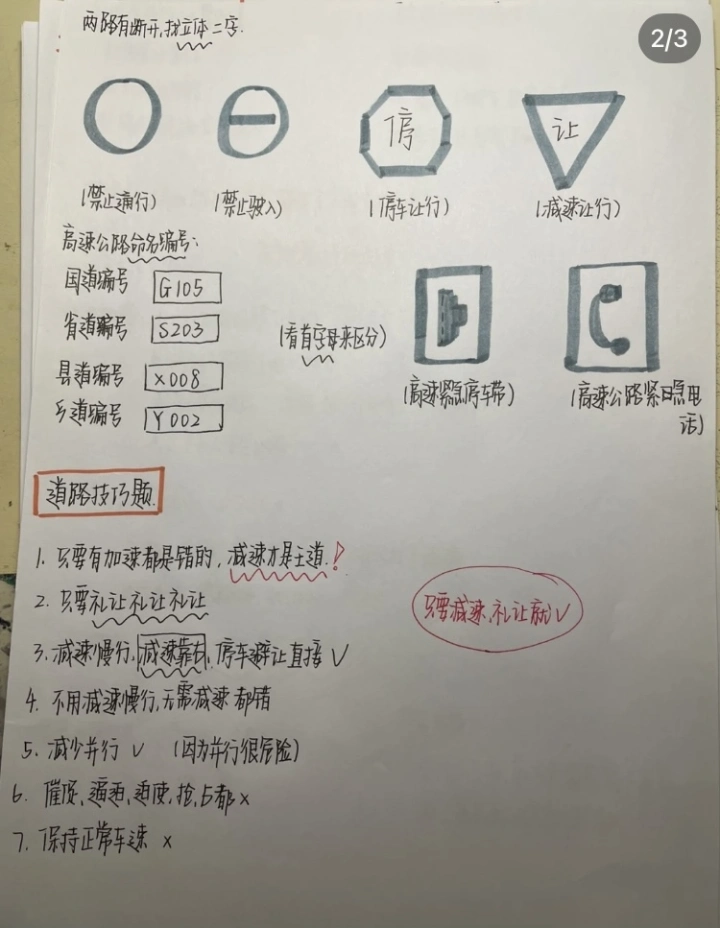 2/3
两路有断开,找立体二字.
停
让
(禁止通行)
(禁止驶入)
(停车让行)
(减速让行)
高速公路命名编号:
国道编号 G105
省道编号 S203
(看首字母来区分)
县道编号 X008
乡道编号 Y002
(高速紧急停车带)
(高速公路紧急电话)
道路技巧题.
1. 只要有加速都是错的,减速才是王道.!
2. 只要礼让礼让礼让
只要减速,礼让就√
3. 减速慢行,减速靠右,停车避让直接√
4. 不用减速慢行,无需减速都错
5. 减少并行√ (因为并行很危险)
6. 催促,逼迫,迫使,抢,占都×
7. 保持正常车速 ×